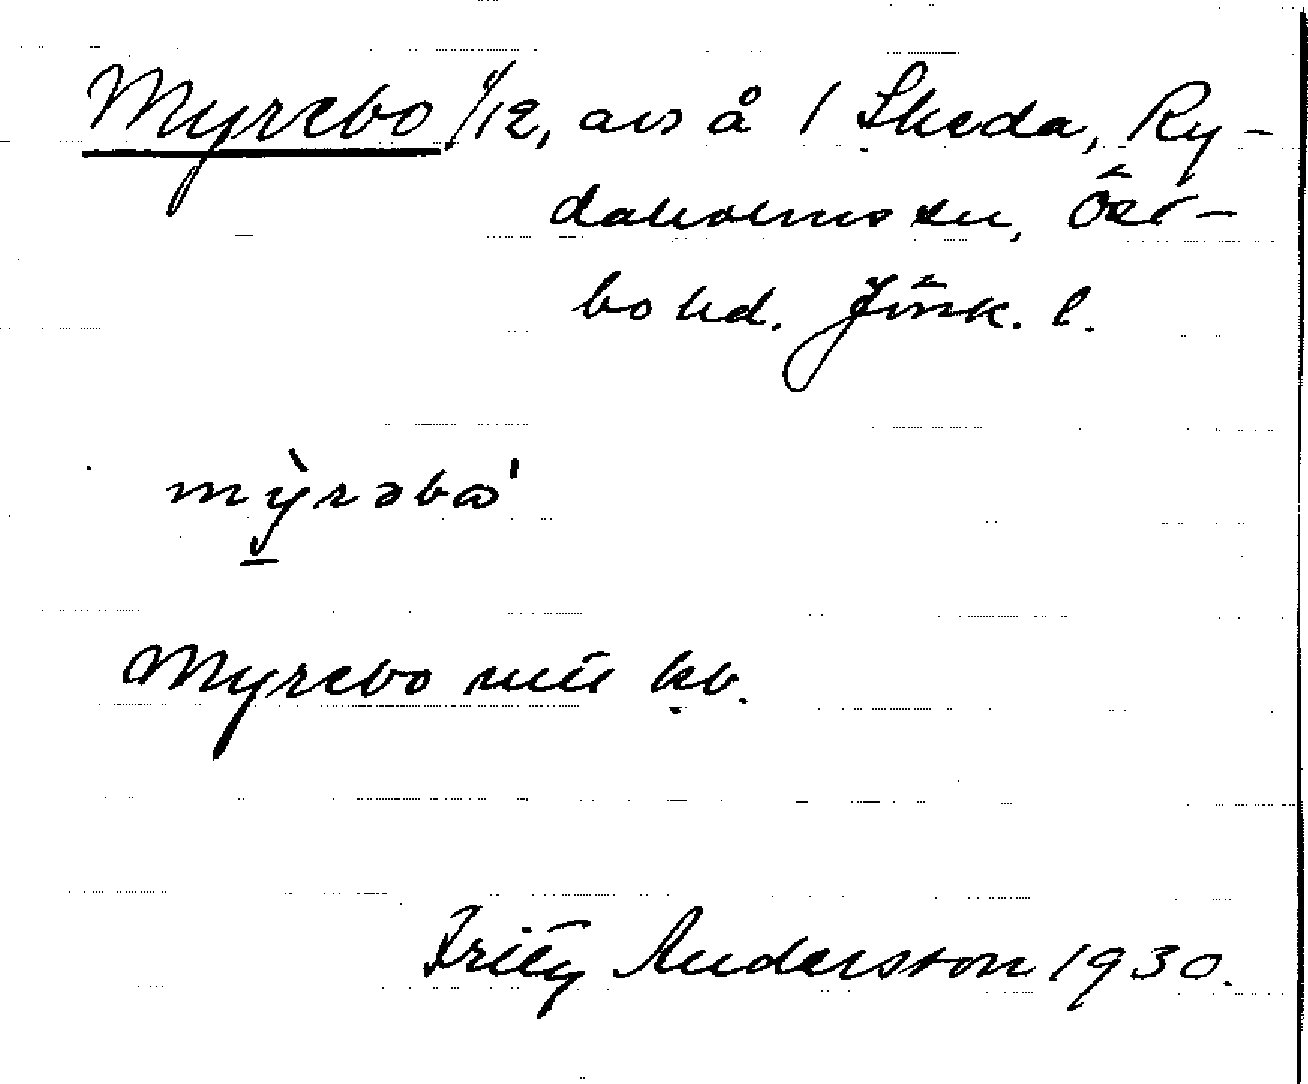 Myrebo 1/12, avs å 1 Skeda, Ry-
daholms sn, Öst-
bo hd. Jönk. l.
mỳrəbω'
Myrebo kb.
Fritz Andersson 1930.